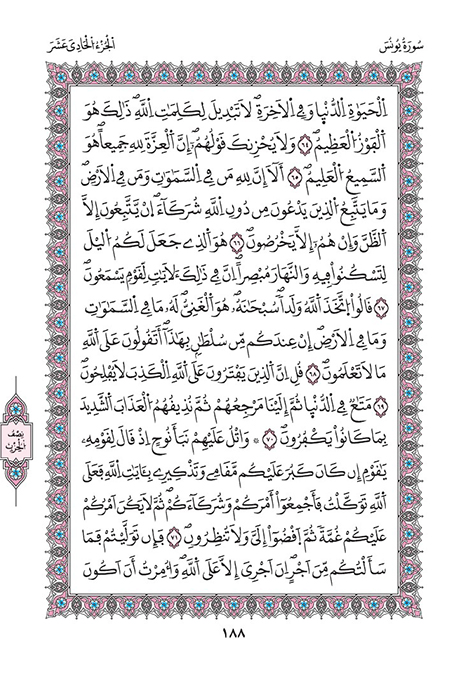 سُورَةُ يُونُسَ
اَلْجُزْءُ الْحَادِي عَشَرَ
اِ۬لْحَيَوٰةِ اِ۬لدُّنْي۪ا وَفِے اِ۬لَاخِرَةِۖ لَا تَبْدِيلَ لِكَلِمَٰتِ اِ۬للَّهِۖ ذَٰلِكَ هُوَ
اَ۬لْفَوْزُ اُ۬لْعَظِيمُۖ ٦٤ وَلَا يُحْزِنكَ قَوْلُهُمُۥٓۖ إِنَّ اَ۬لْعِزَّةَ لِلهِ جَمِيعاًۖ هُوَ
اَ۬لسَّمِيعُ اُ۬لْعَلِيمُۖ ٦٥ أَلَآ إِنَّ لِلهِ مَن فِے اِ۬لسَّمَٰوَٰتِ وَمَن فِے اِ۬لَارْضِۖ
وَمَا يَتَّبِعُ اُ۬لذِينَ يَدْعُونَ مِن دُونِ اِ۬للَّهِ شُرَكَآءَۖ اِنْ يَّتَّبِعُونَ إِلَّا
اَ۬لظَّنَّ وَإِنْ هُمُۥٓ إِلَّا يَخْرُصُونَۖ ٦٦ هُوَ اَ۬لذِے جَعَلَ لَكُمُ اُ۬ليْلَ
لِتَسْكُنُواْ فِيهِ وَالنَّهَارَ مُبْصِراًۖ اِنَّ فِے ذَٰلِكَ لَأٓيَٰتٖ لِّقَوْمٖ يَسْمَعُونَۖ
٦٧ قَالُواْ اُ۪تَّخَذَ اَ۬للَّهُ وَلَداٗۖ سُبْحَٰنَهُۥۖ هُوَ اَ۬لْغَنِيُّۖ لَهُۥ مَا فِے اِ۬لسَّمَٰوَٰتِ
وَمَا فِے اِ۬لَارْضِۖ إِنْ عِندَكُم مِّن سُلْطَٰنِۢ بِهَٰذَآۖ أَتَقُولُونَ عَلَى اَ۬للَّهِ
مَا لَا تَعْلَمُونَۖ ٦٨ قُلِ اِنَّ اَ۬لذِينَ يَفْتَرُونَ عَلَى اَ۬للَّهِ اِ۬لْكَذِبَ لَا يُفْلِحُونَۖ
٦٩ مَتَٰعٞ فِے اِ۬لدُّنْي۪ا ثُمَّ إِلَيْنَا مَرْجِعُهُمْ ثُمَّ نُذِيقُهُمُ اُ۬لْعَذَابَ اَ۬لشَّدِيدَ
بِمَا كَانُواْ يَكْفُرُونَۖ ٧٠ وَاتْلُ عَلَيْهِمْ نَبَأَ نُوحٍ اِذْ قَالَ لِقَوْمِهِۦ
يَٰقَوْمِ إِن كَانَ كَبُرَ عَلَيْكُم مَّقَامِے وَتَذْكِيرِے بِـَٔايَٰتِ اِ۬للَّهِ فَعَلَى
اَ۬للَّهِ تَوَكَّلْتُ فَأَجْمِعُوٓاْ أَمْرَكُمْ وَشُرَكَآءَكُمْۖ ثُمَّ لَا يَكُنَ اَمْرُكُمْ
عَلَيْكُمْ غُمَّةٗۖ ثُمَّ اَ۪قْضُوٓاْ إِلَيَّ وَلَا تُنظِرُونِۖ ٧١ فَإِن تَوَلَّيْتُمْ فَمَا
سَأَلْتُكُم مِّنَ اَجْرٍۖ اِنَ اَجْرِيَ إِلَّا عَلَى اَ۬للَّهِۖ وَأُمِرْتُ أَنَ اَكُونَ
نِصْف
الْحِزْب
١٨٨